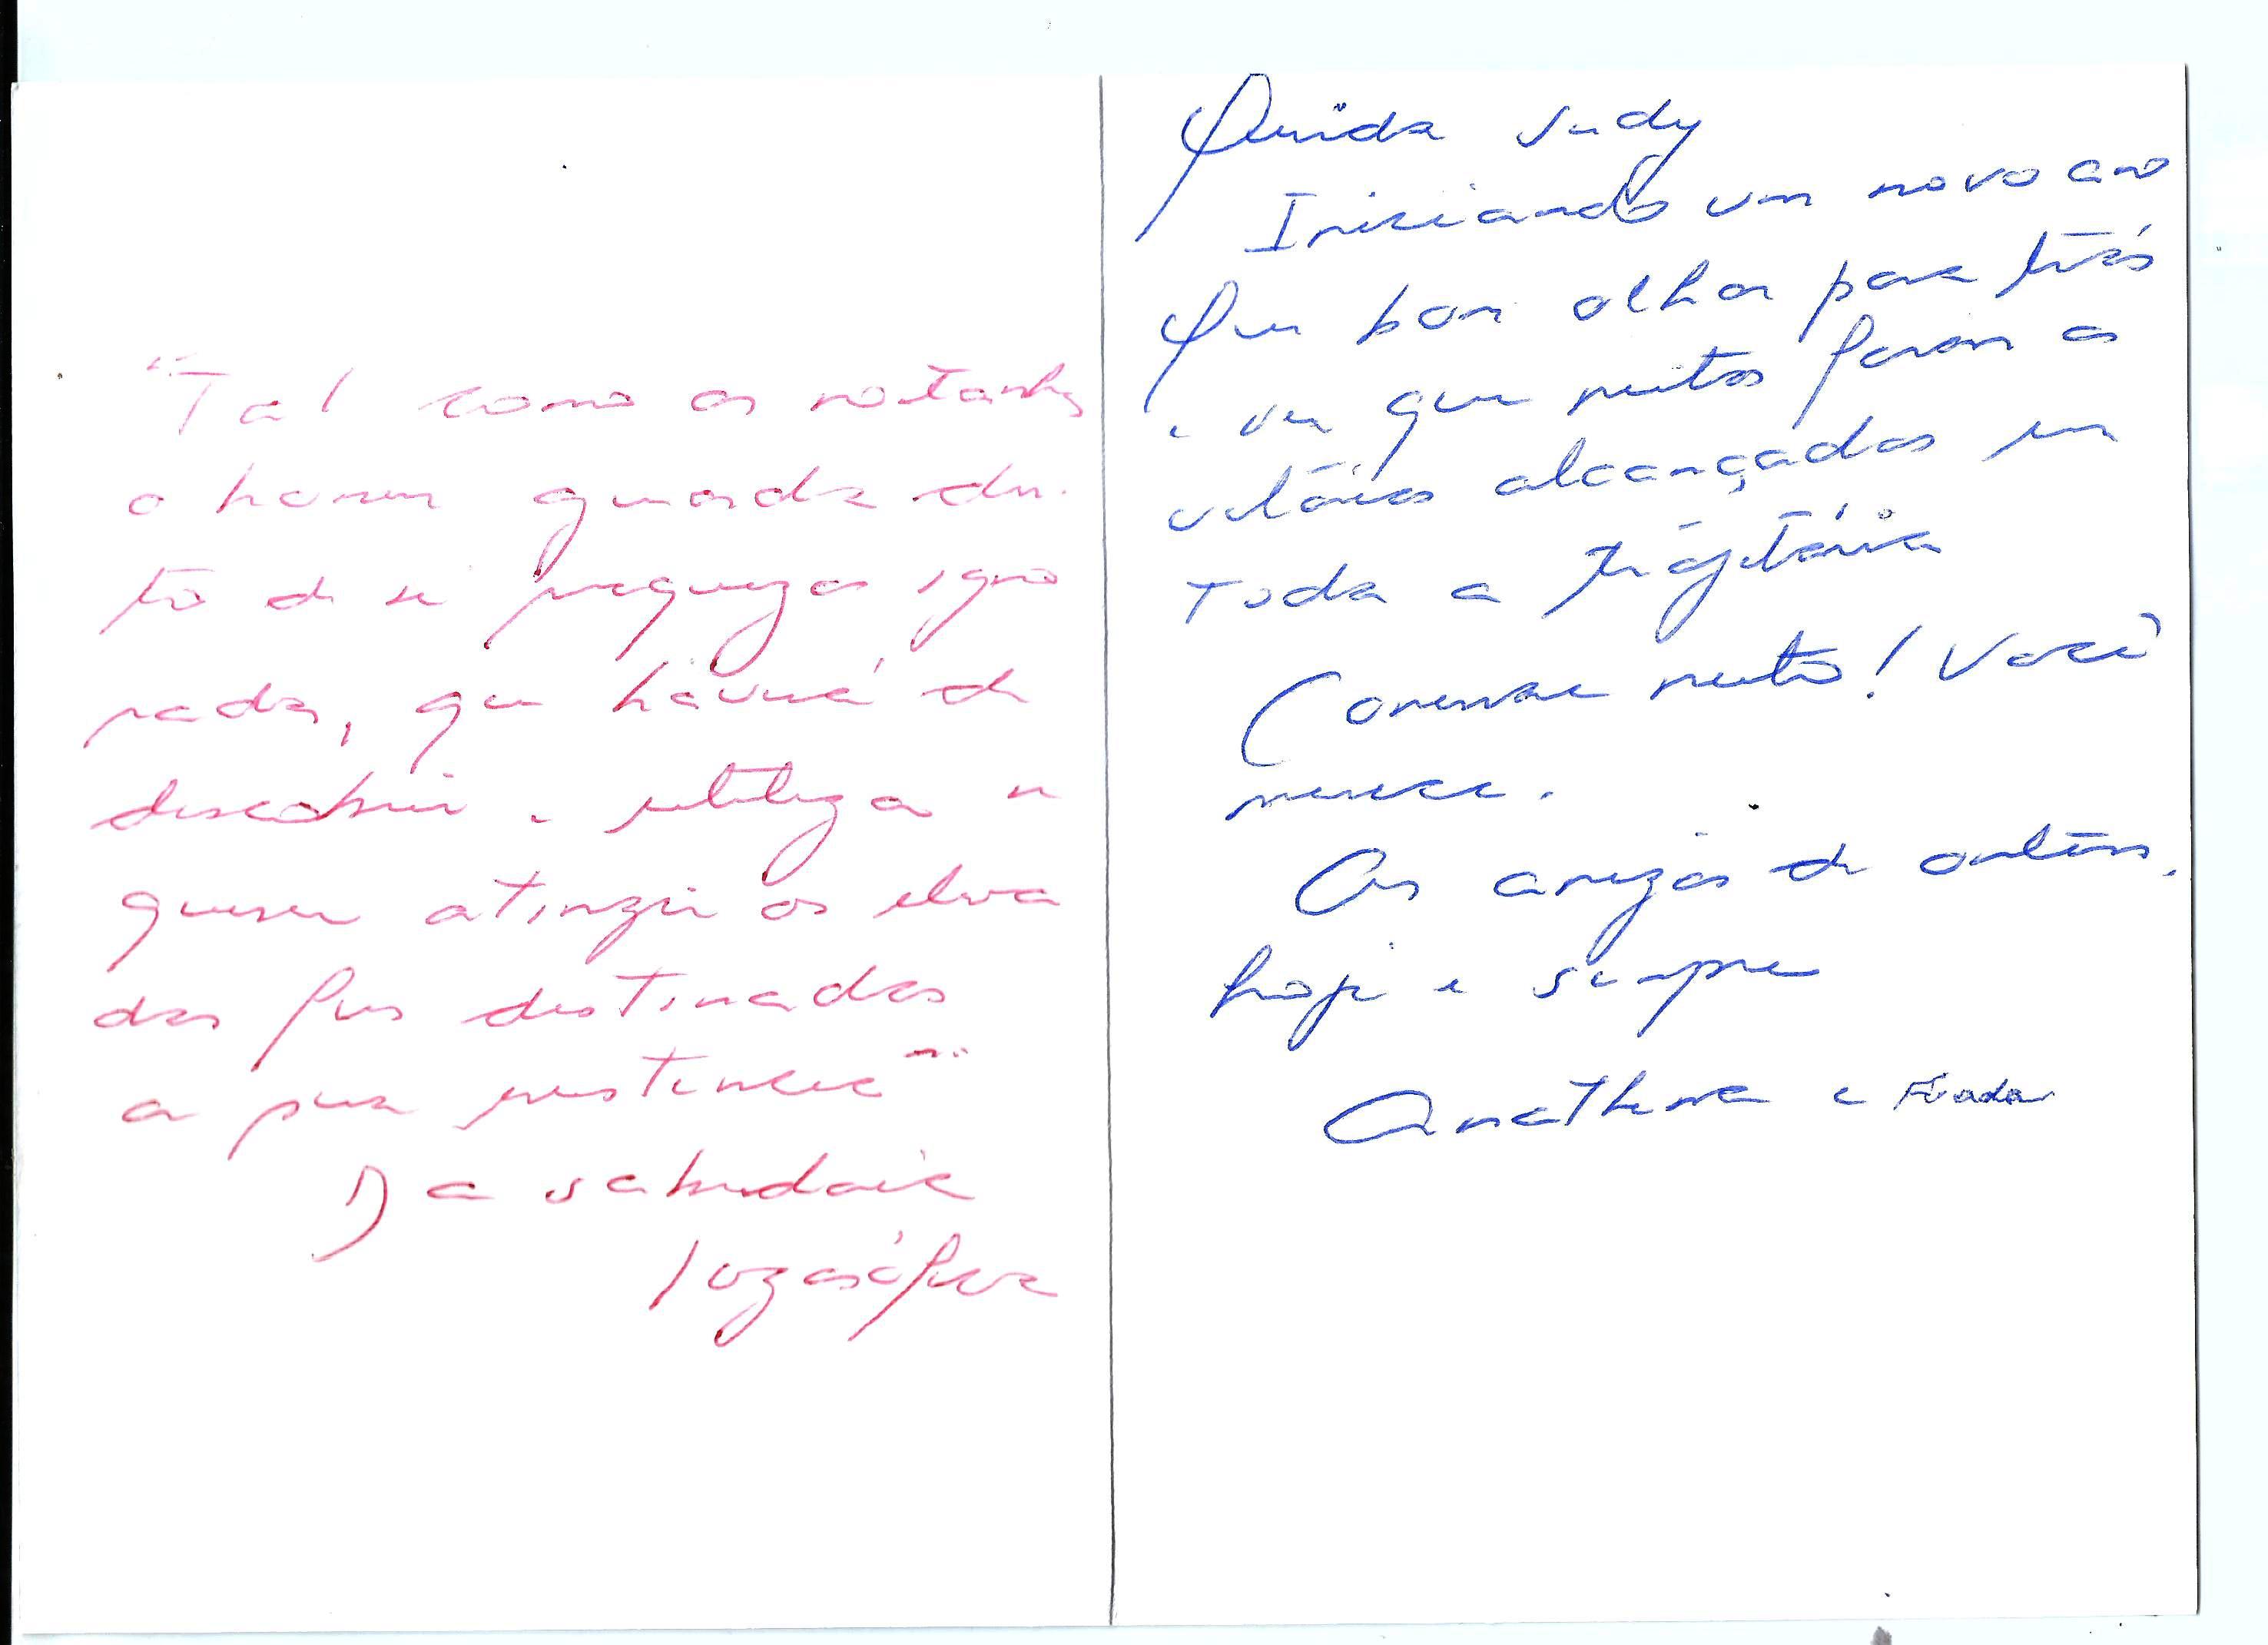 "Tal como as montanhas
o homem guarda den-
tro de si riquezas igno
radas, que haverá de
descobrir e utilizar se
quiser atingir os eleva
dos fins destinados
a sua existência"
Da sabedoria
Querida Judy
Iniciando um novo ano
Que bom olhar para trás
e ver que muitas foram as
vitórias alcançadas em
toda a trajetória
Comemore muito! Você
merece.
As amigas de ontem,
hoje e sempre